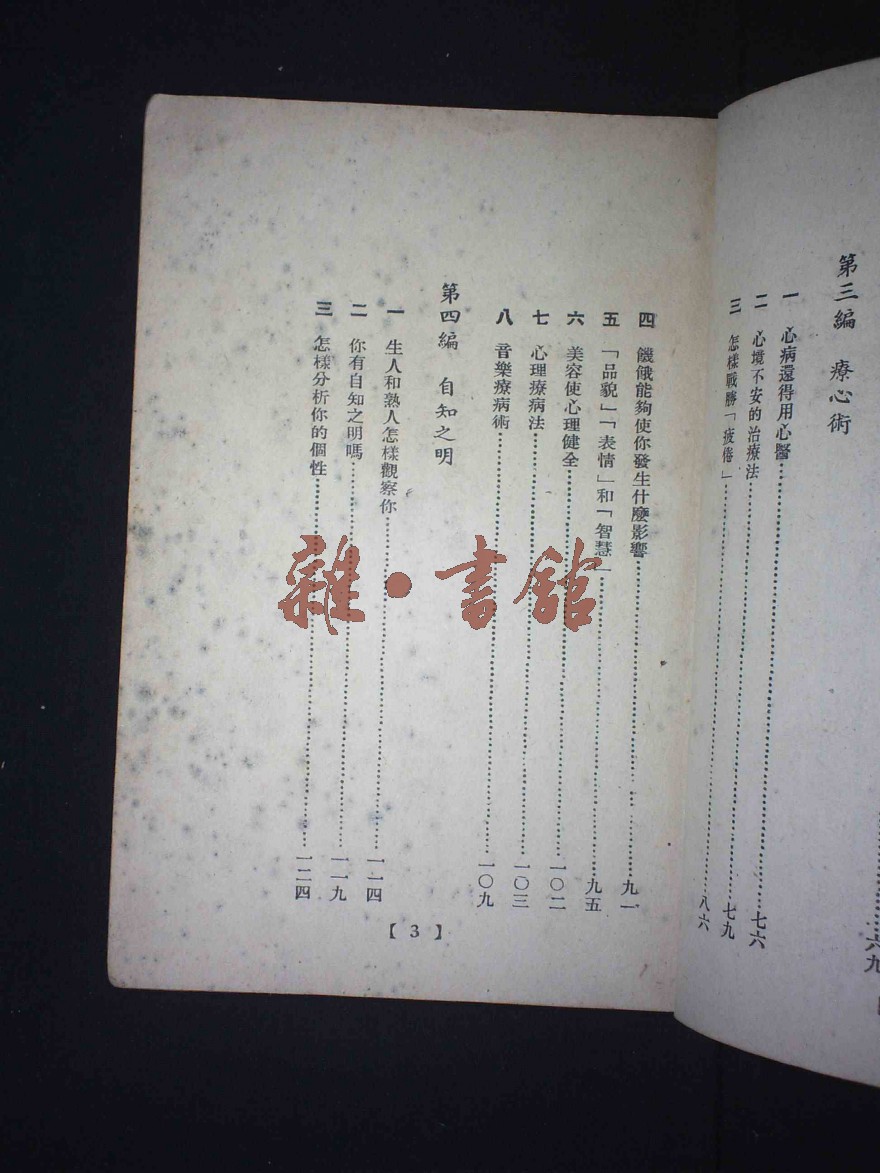 第三編 療心術
一 心病還得用心醫……七六
二 心境不安的治療法……七九
三 怎樣戰勝「疲倦」……八六
四 饑餓能夠使你發生什麼影響……九一
五 「品貌」「表情」和「智慧」……九五
六 美容使心理健全……一〇二
七 心理療病法……一〇三
八 音樂療病術……一〇九
第四編 自知之明
一 生人和熟人怎樣觀察你……一一四
二 你有自知之明嗎……一一九
三 怎樣分析你的個性……一二四
【3】
……六九
雜·書館